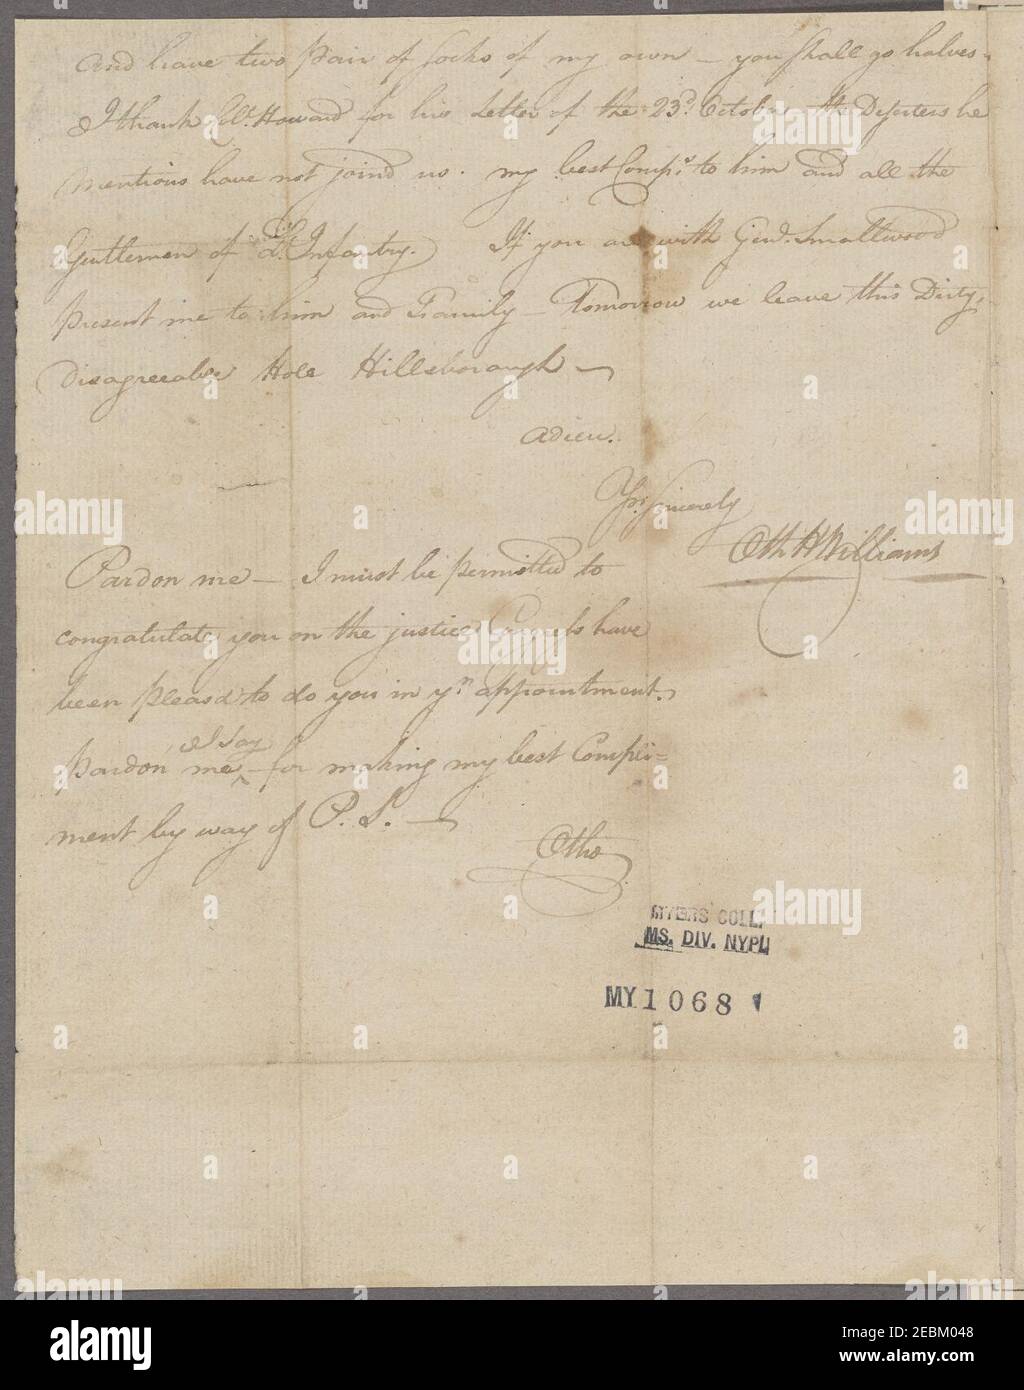 and have two pair of socks of my own — you shall go halves.
I thank Col. Howard for his Letter of the 23d. October the Deserters he
mentions have not joind us. my best Comps. to him and all the
Gentlemen of Lt. Infantry. If you are with Genl. Smallwood
present me to him and Family — Tomorrow we leave this Dirty,
Disagreeable Hole Hillsborough —
adieu.
Yrs. Sincerely
Otho H Williams
Pardon me — I must be permitted to
congratulate you on the justice Congress have
been pleasd to do you in yr. appointment.
I say
pardon me ^ — for making my best Compli=
ment by way of P. S. —
Otho
MYERS COLL.
MS. DIV. NYPL
MY1068
alamy
a
Image ID: 2EBM048
www.alamy.com